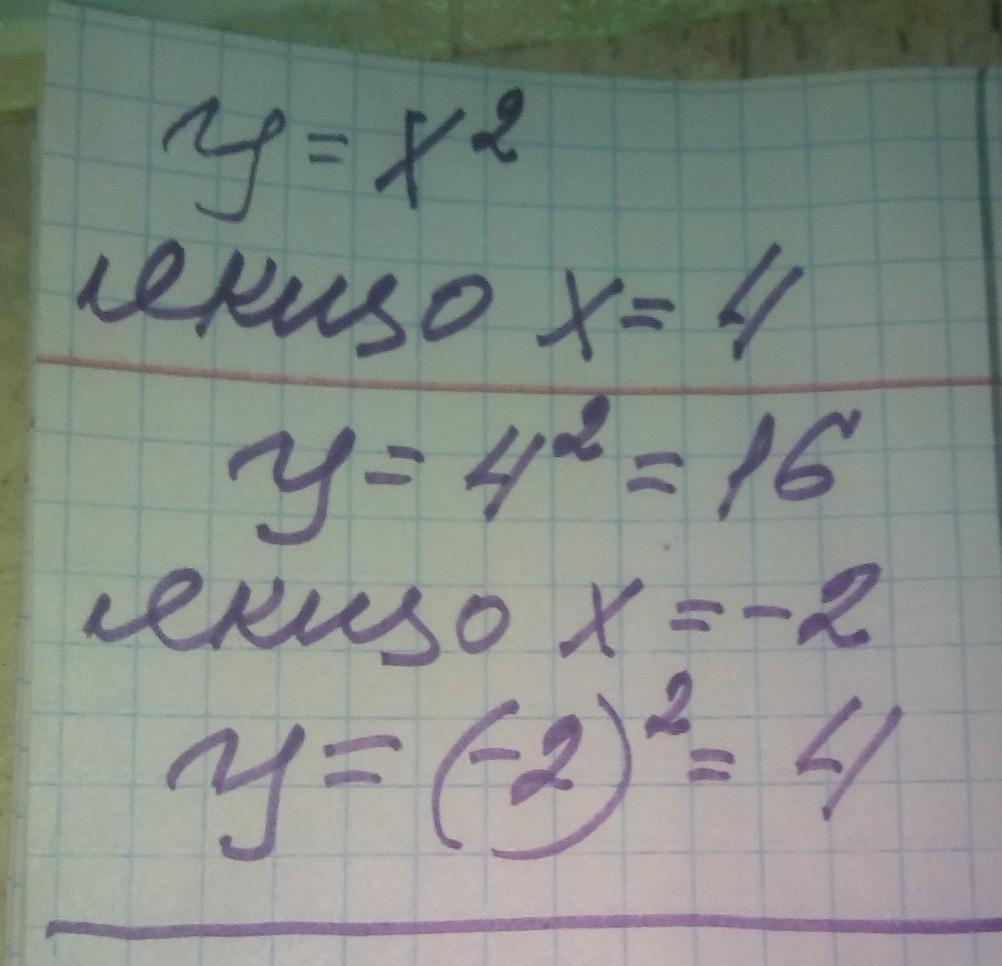 y = x²
якщо x = 4
y = 4² = 16
якщо x = -2
y = (-2)² = 4